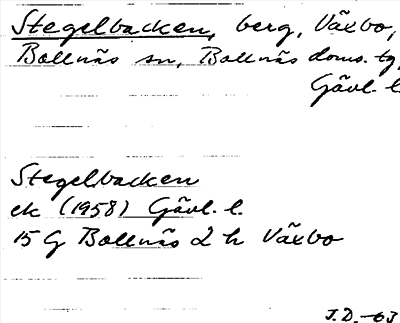 Stegelbacken, berg, Växbo,
Bollnäs sn, Bollnäs doms. tg,
Gävl. l.
Stegelbacken
ek (1958) Gävl. l.
15 G Bollnäs 2 h Växbo
J.D. -63